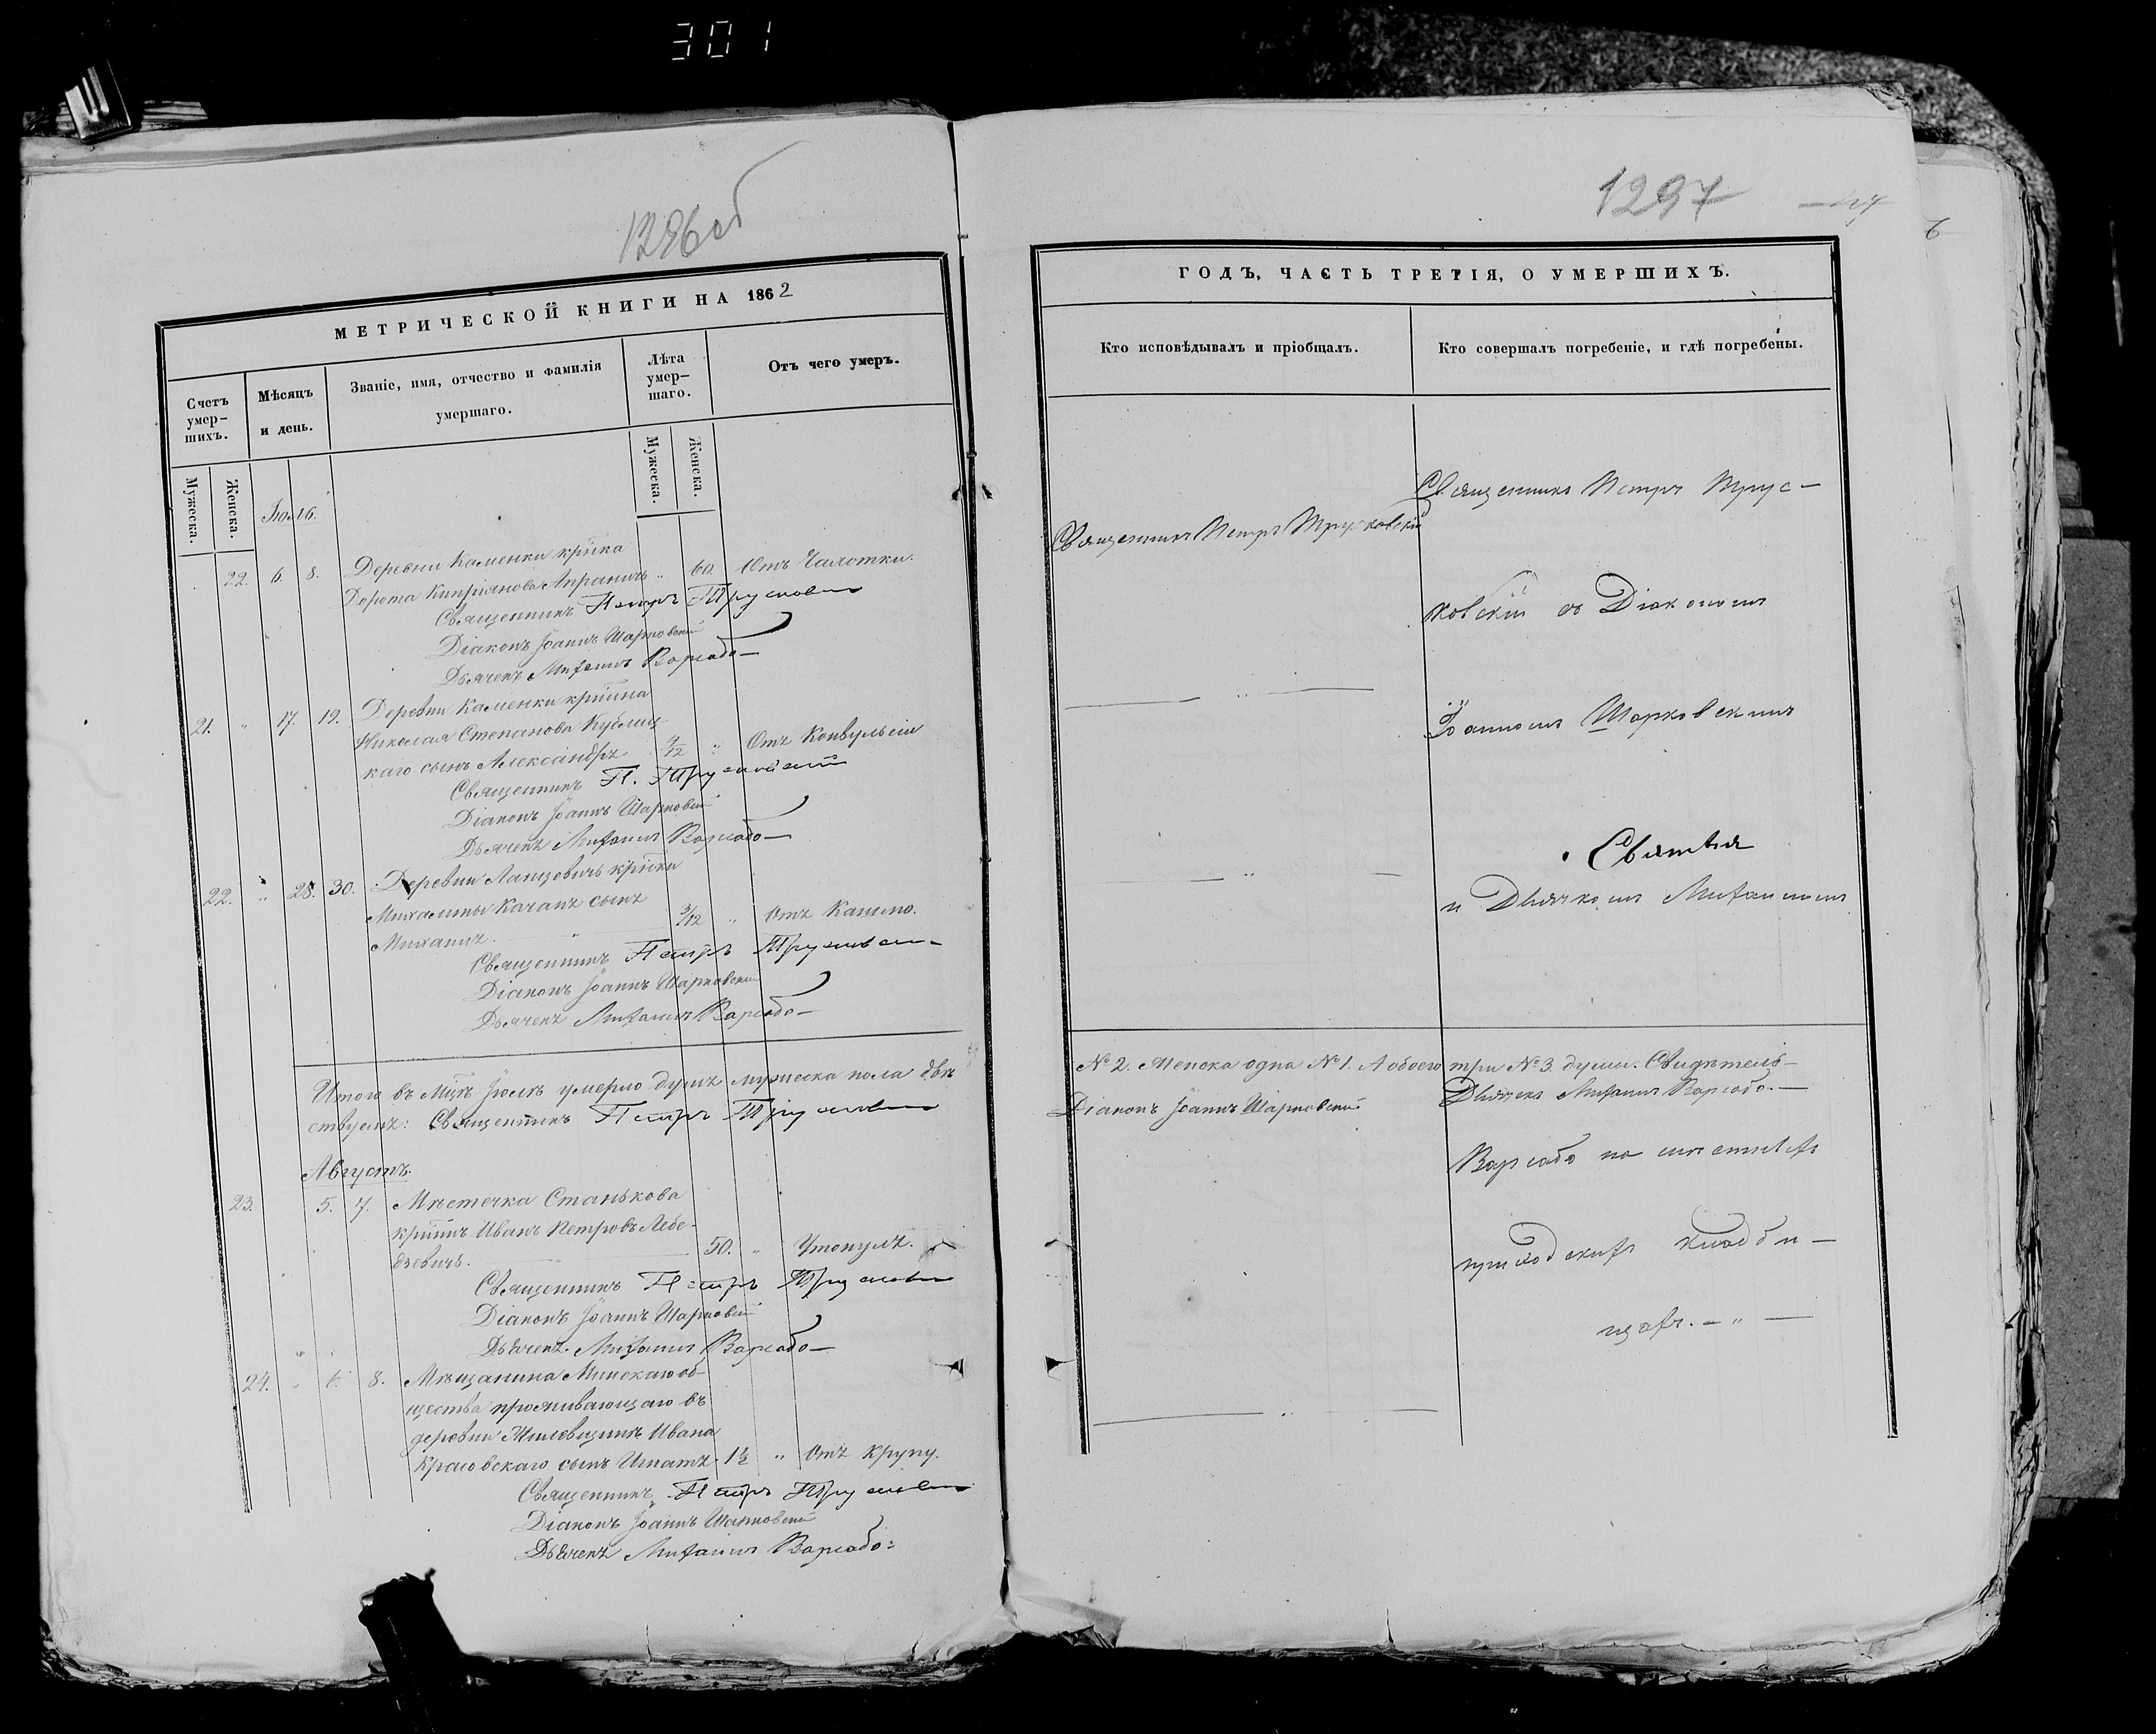 301
1296об
МЕТРИЧЕСКОЙ КНИГИ НА 1862
Счетъ умер-шихъ.
Мѣсяцъ и день.
Званіе, имя, отчество и фамилія умершаго.
Лѣта умер-шаго.
Отъ чего умеръ.
Мужеска.
Женска.
Мужеска.
Женска.
22. 6. 8. Деревни Каменки кр҃ка
Дорота Кипріянова " 60 Отъ Чахотки.
Священникъ Петръ Трусковскій
Діаконъ Іоаннъ Шарковскій
Дьячекъ Михаилъ Варсабо
21. " 17. 19. Деревни Каменки кр҃нина
Николая Степанова Кублиц-
каго сынъ Александръ. "  Отъ Конвульсіи
Священникъ П. Трусковскій
Діаконъ Іоаннъ Шарковскій
Дьячекъ Михаилъ Варсабо
22. " 28. 30. Деревни кр҃ки
Михалины Качанъ сынъ
Михаилъ. 3/12 " Отъ Кашлю.
Священникъ Петръ Трусковскій
Діаконъ Іоаннъ Шарковскій
Дьячекъ Михаилъ Варсабо
Итого въ Мц҃ѣ Іюлѣ умерло душъ мужеска пола двѣ
ствуемъ: Священникъ Петръ Трусковскій
Августъ.
23. 5. 7. Мѣстечка Станькова
кр҃нинъ Иванъ Петровъ Лебе-
дзевичъ. 50. " Утонулъ.
Священникъ Петръ Трусковскій
Діаконъ Іоаннъ Шарковскій
Дьячекъ Михаилъ Варсабо
24. " 6. 8. Мѣщанина Минскаго об-
щества проживающаго въ
деревни Ивана
сынъ Игнатъ 1½ " Отъ Крупу.
Священникъ Петръ Трусковскій
Діаконъ Іоаннъ Шарковскій
Дьячекъ Михаилъ Варсабо
1297
ГОДЪ, ЧАСТЬ ТРЕТІЯ, О УМЕРШИХЪ.
Кто исповѣдывалъ и пріобщалъ.
Кто совершалъ погребеніе, и гдѣ погребены.
Священникъ Петръ Трус-
Священникъ Петръ Трусковскій
ковскій съ Діакономъ
Іоанномъ Шарковскимъ
и Дьячкомъ Михаиломъ
№ 2. Женска одна № 1. А обоего три № 3. души. Свидѣтель-
Діаконъ Іоаннъ Шарковскій Дьячекъ Михаилъ Варсабо.
Варсабо на
приходскихъ кладби-
щахъ.